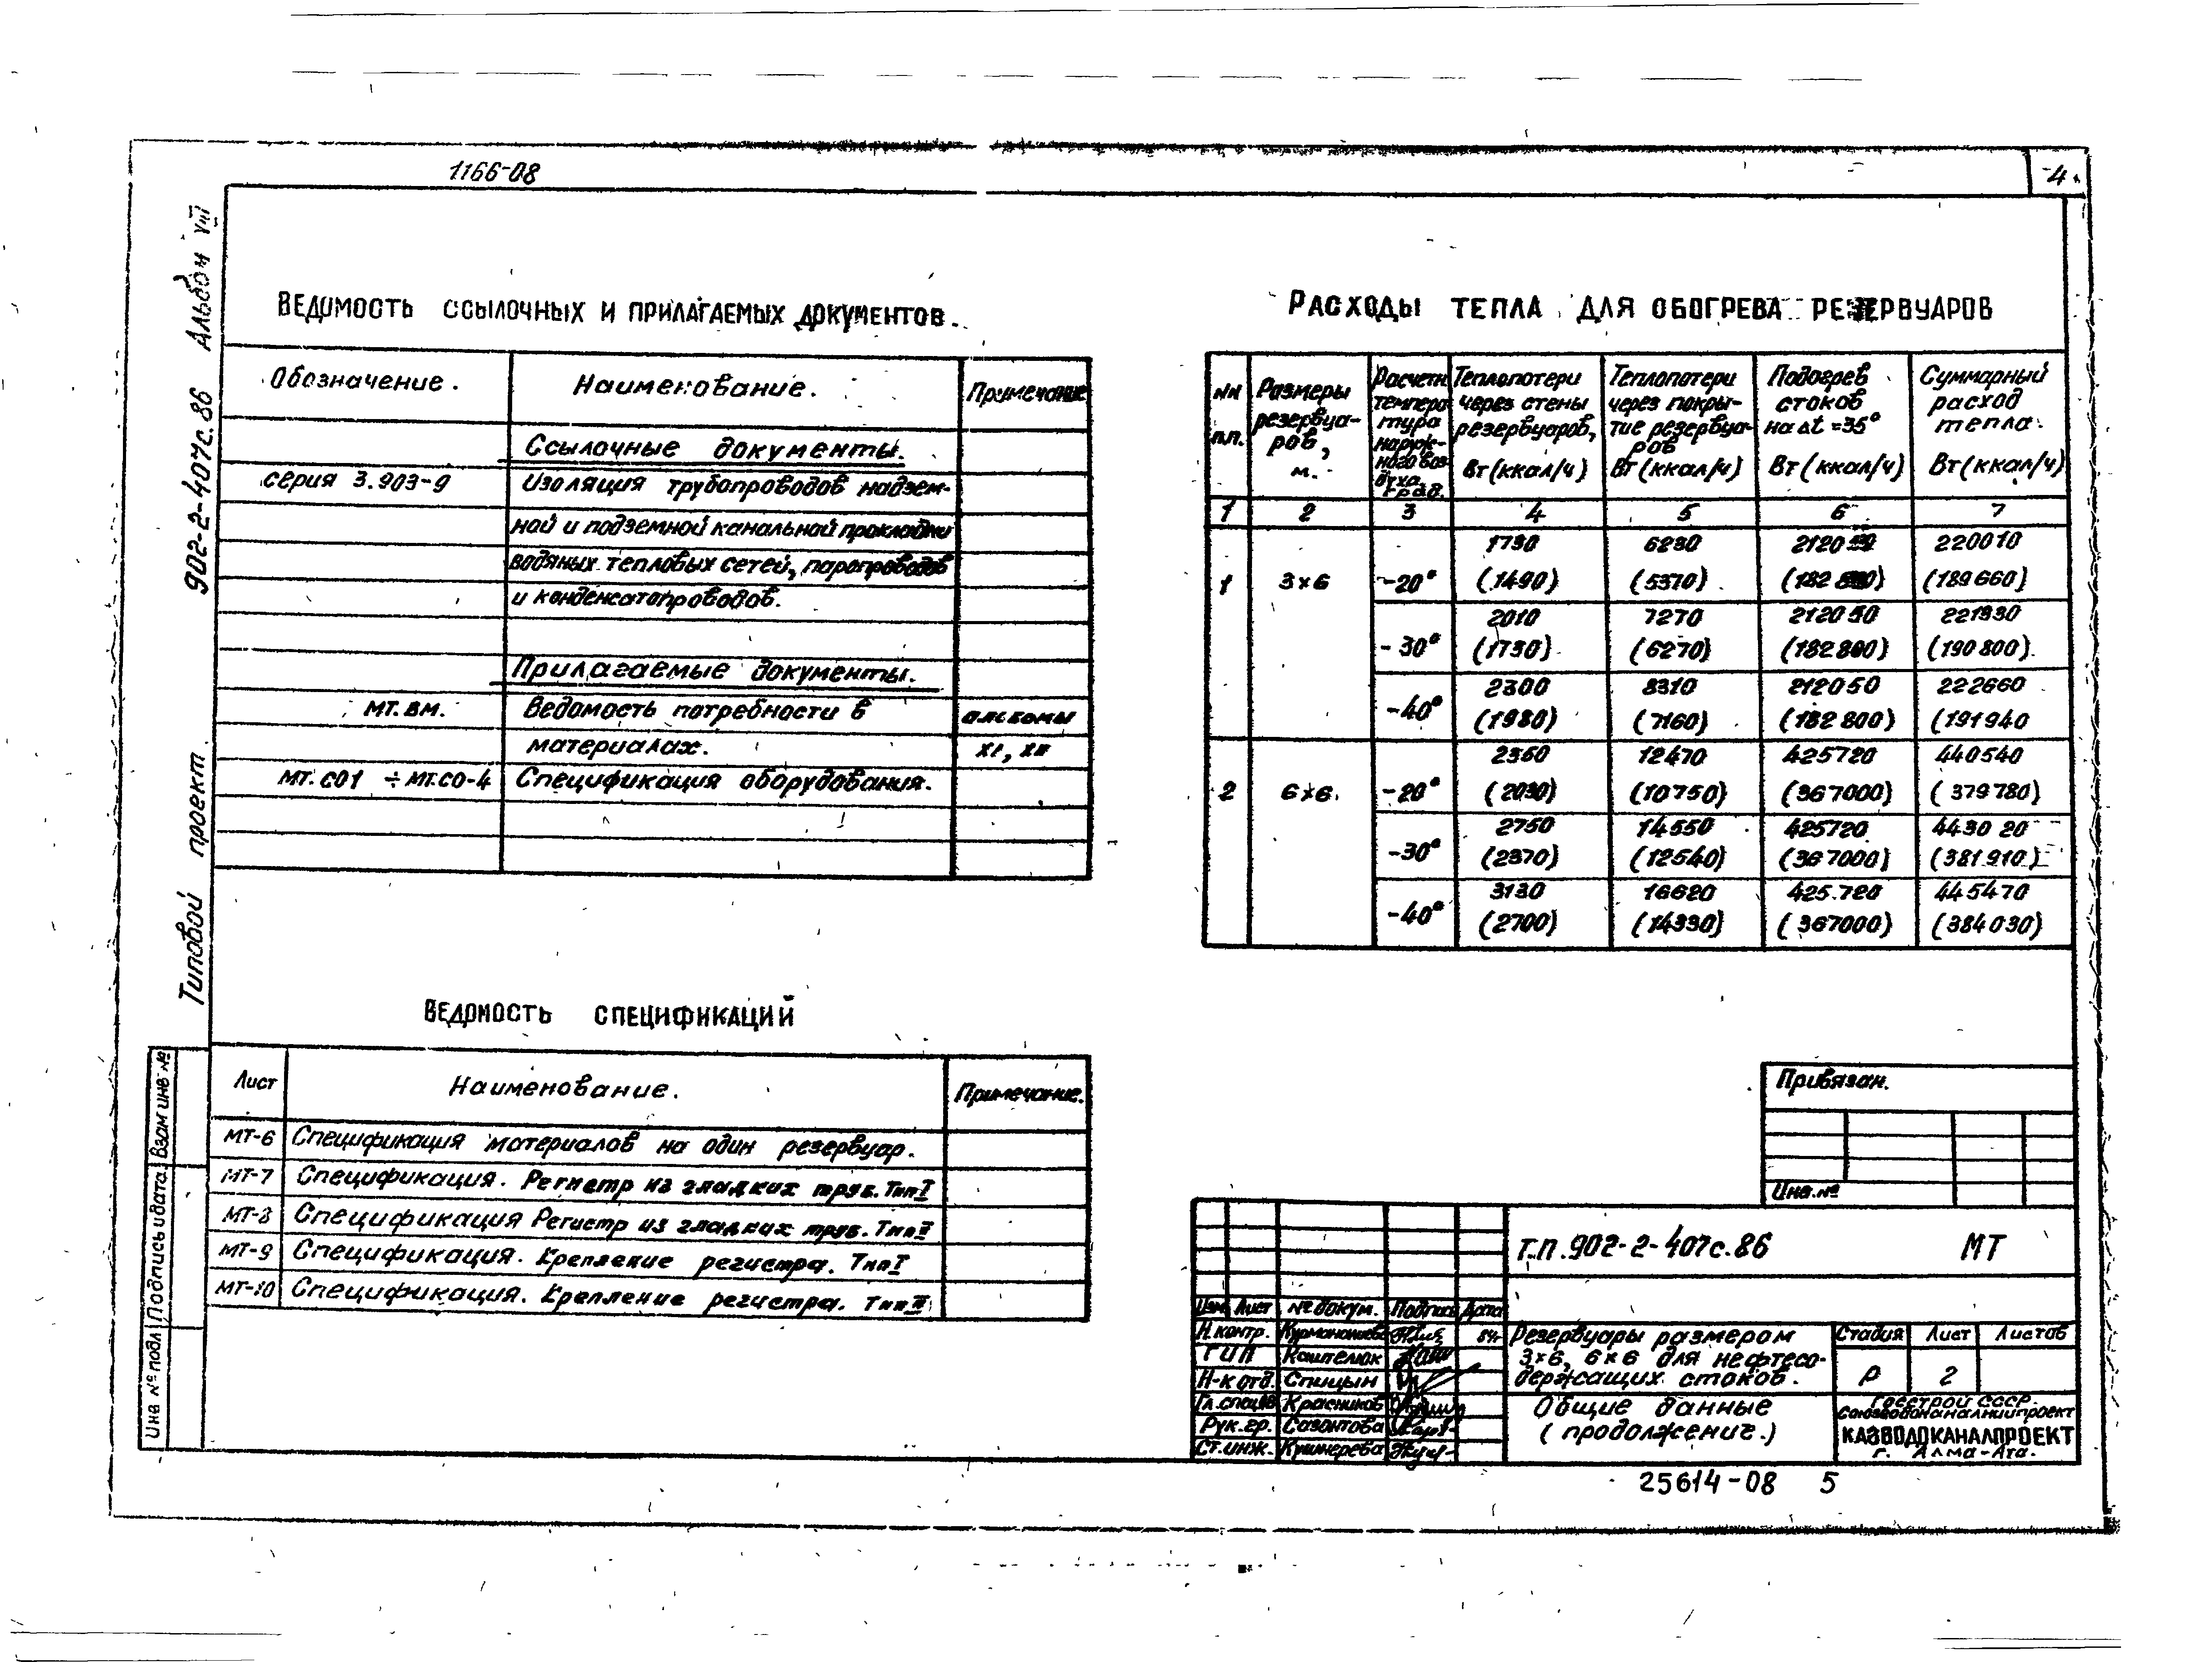 1166-08
4
Типовой проект 902-2-407с.86 Альбом VIII
Ведомость ссылочных и прилагаемых документов.
Обозначение. Наименование. Примечание
Ссылочные документы.
серия 3.903-9 Изоляция трубопроводов надзем-
ной и подземной канальной прокладки
водяных тепловых сетей, паропроводов
и конденсатопроводов.
Прилагаемые документы.
МТ.ВМ. Ведомость потребности в альбомы
материалах.
МТ.СО1 ÷ МТ.СО-4 Спецификация оборудования.
Ведомость спецификаций
Лист Наименование. Примечание.
МТ-6 Спецификация материалов на один резервуар.
МТ-7 Спецификация. Регистр из гладких труб. Тип I
МТ-8 Спецификация Регистр из гладких труб. Тип II
МТ-9 Спецификация. Крепление регистра. Тип I
МТ-10 Спецификация. Крепление регистра. Тип II
Расходы тепла для обогрева резервуаров
NN п.п.
Размеры резервуа-ров, м.
Расчетн. темпера тура наруж-ного воз-духа град.
Теплопотери через стены резервуаров, Вт (ккал/ч)
Теплопотери через покры-тие резервуа-ров Вт (ккал/ч)
Подогрев стоков на Δt = 35° Вт (ккал/ч)
Суммарный расход тепла. Вт (ккал/ч)
1 2 3 4 5 6 7
1730 6230 212050 220010
1 3×6 -20° (1490) (5370) (182800) (189660)
2010 7270 212050 221330
-30° (1730) (6270) (182800) (190800).
2300 8310 212050 222660
-40° (1980) (7160) (182800) (191940
2360 12470 425720 440540
2 6×6. -20° (2030) (10750) (367000) (379780)
2750 14550 425720 443020
-30° (2370) (12540) (367000) (381910)
3130 16620 425720 445470
-40° (2700) (14330) (367000) (384030)
Привязан.
Инв.№
Т.П. 902-2-407с.86 МТ
Изм. Лист № докум. Подпись Дата
Н.контр. 84г
ГИП Каштелюк
Н-к отд. Спицын
Гл.спец. Красников
Рук.гр. Сазонтова
Ст.инж. Кушнерева
Резервуары размером
3×6, 6×6 для нефтесо-
держащих стоков.
Стадия Лист Листов
Р 2
Общие данные
(продолжение.)
Госстрой СССР
Союзводоканалниипроект
КАЗВОДОКАНАЛПРОЕКТ
г. Алма-Ата.
Взам инв №
Подпись и дата
Инв № подл
25614-08 5